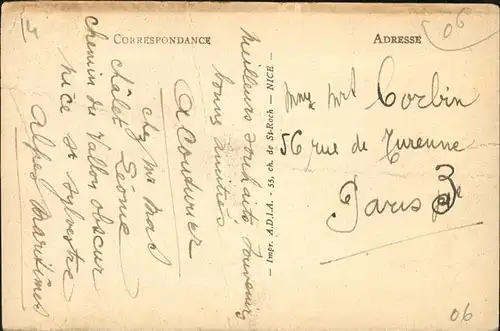 CORRESPONDANCE
ADRESSE
06
Meilleurs souhaits souvenirs
bonnes amitiés
chez Mr
châlet Léonie
chemin du Vallon obscur
Nice St Sylvestre
Alpes Maritimes
— Impr. A.D.I.A. - 55, ch. de St-Roch — NICE —
Corbin
56 rue de Turenne
Paris 3e
06